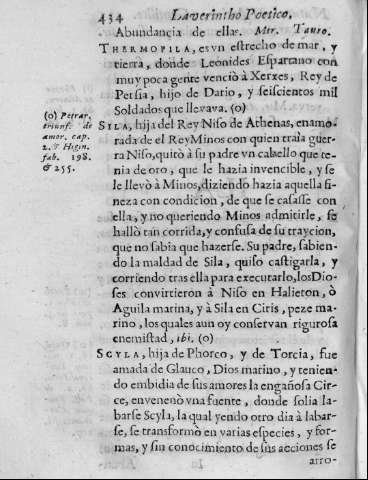 434 Laverintho Poetico.
Abundancia de ella. Mtr. Tauro.
THERMOPILA, es vn estrecho de mar, y
tierra, donde Leonides Espartano con
muy poca gente venciò à Xerxes, Rey de
Persia, hijo de Dario, y seiscientos mil
Soldados que llevava. (o)
(o) Petrar.
triunf. de
amor. cap.
2. & Higin.
fab. 198.
& 255.
SILA, hija del Rey Niso de Athenas, enamo-
rada de el Rey Minos con quien traìa guer-
ra Niso, quitò à su padre vn cabello que te-
nia de oro, que le hazia invencible, y se
le llevò à Minos, diziendo hazia aquella fi-
neza con condicion, de que se casasse con
ella, y no queriendo Minos admitirle, se
hallò tan corrida, y confusa de su traycion,
que no sabia que hazerse. Su padre, sabien-
do la maldad de Sila, quiso castigarla, y
corriendo tras ella para executarlo, los Dio-
ses convirtieron à Niso en Halieton, ò
Aguila marina, y à Sila en Ciris, peze ma-
rino, los quales aun oy conservan rigurosa
enemistad, ibi. (o)
SCYLA, hija de Phorco, y de Torcia, fue
amada de Glauco, Dios marino, y tenien-
do embidia de sus amores la engañosa Cir-
ce, envenenò vna fuente, donde solia la-
barse Scyla, la qual yendo otro dia à labar-
se, se transformò en varias especies, y for-
mas, y sin conocimiento de sus acciones se
arro-